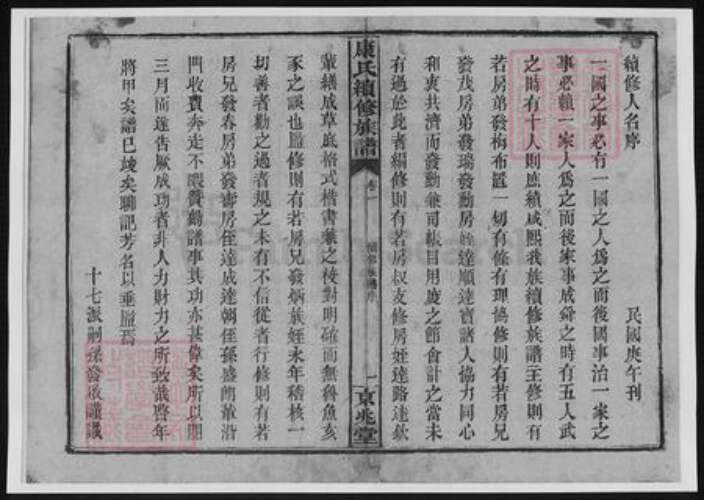 續修人名序
民國庚午刊
一國之事必有一國之人爲之而後國事治一家之
事必賴一家人爲之而後家事成舜之時有五人武
之時有十人則庶績咸熙我族續修族譜主修則有
若房弟發梅布置一切有條有理協修則有若房兄
發茂房弟發瑞發勳房姪達順達寶諸人協力同心
和衷共濟而發勳兼司帳目用度之節會計之當未
有過於此者編修則有若房叔支修房姪達路達欽
康氏續修族譜
卷一
續修族譜序
一
京兆堂
華繕成草底格式楷書兼之校對明確而無魯魚亥
豕之誤也監修則有若房兄發炳族姪永年稽核一
切善者勸之過者規之未有不信從者行修則有若
房兄發春房弟發壽房侄達成達朝侄孫盛朗華沿
門收費奔走不暇贊勷譜事其功亦甚偉矣所以閱
三月而遂告厥成功者非人力財力之所致哉啓年
將甲矣譜已竣矣聊記芳名以垂監焉
十七派嗣孫發啟謹識